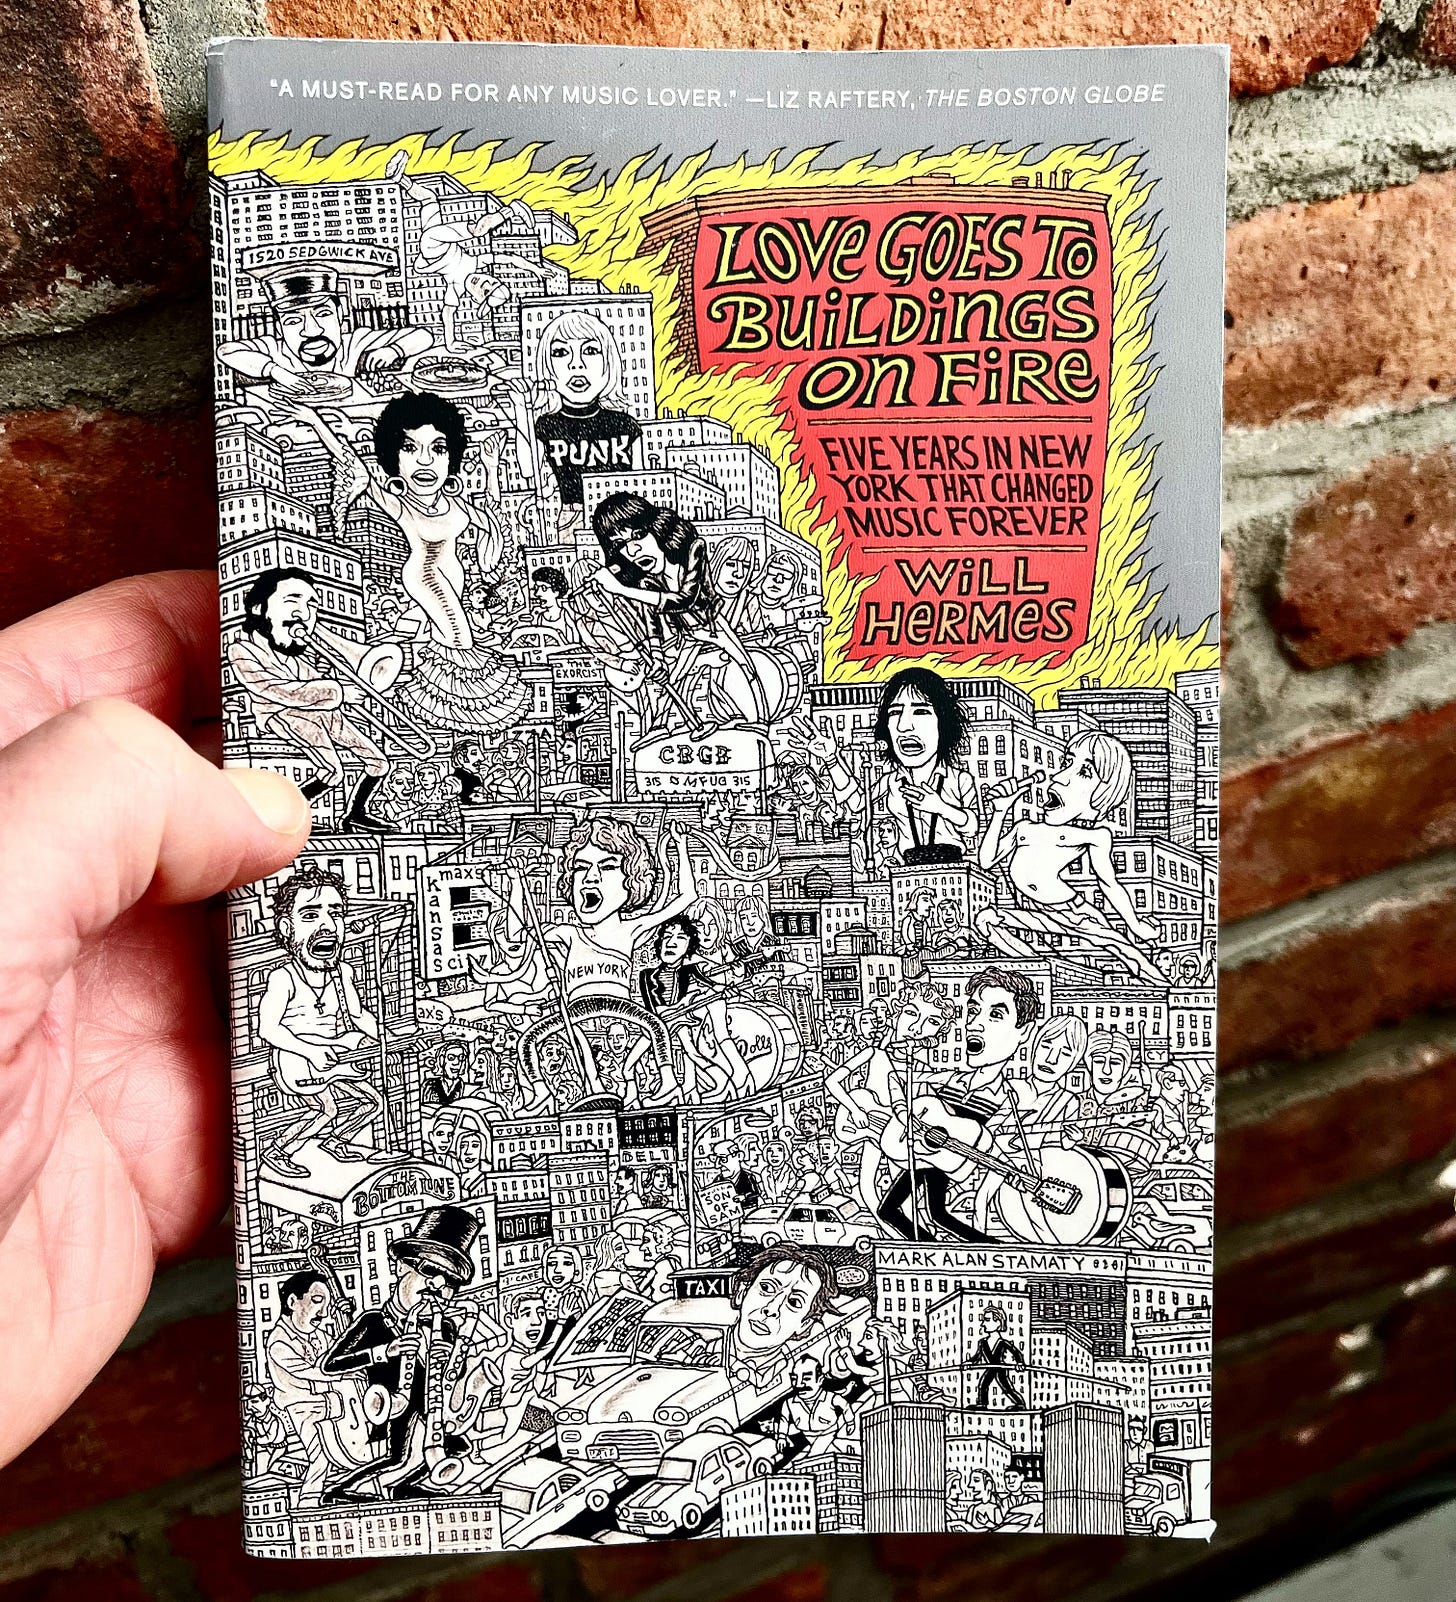 "A MUST-READ FOR ANY MUSIC LOVER." —LIZ RAFTERY, THE BOSTON GLOBE
LOVE GOES TO
BUILDINGS
ON FIRE
FIVE YEARS IN NEW
YORK THAT CHANGED
MUSIC FOREVER
WILL
HERMES
1520 SEDGWICK AVE
PUNK
THE
EXORCIST
PIZZA
CBGB
315 OMFUG 315
max's
kansas
city
NEW YORK
Dolls
DELI
SON
OF
SAM
THE
BOTTOM LINE
CAFE
TAXI
MARK ALAN STAMATY